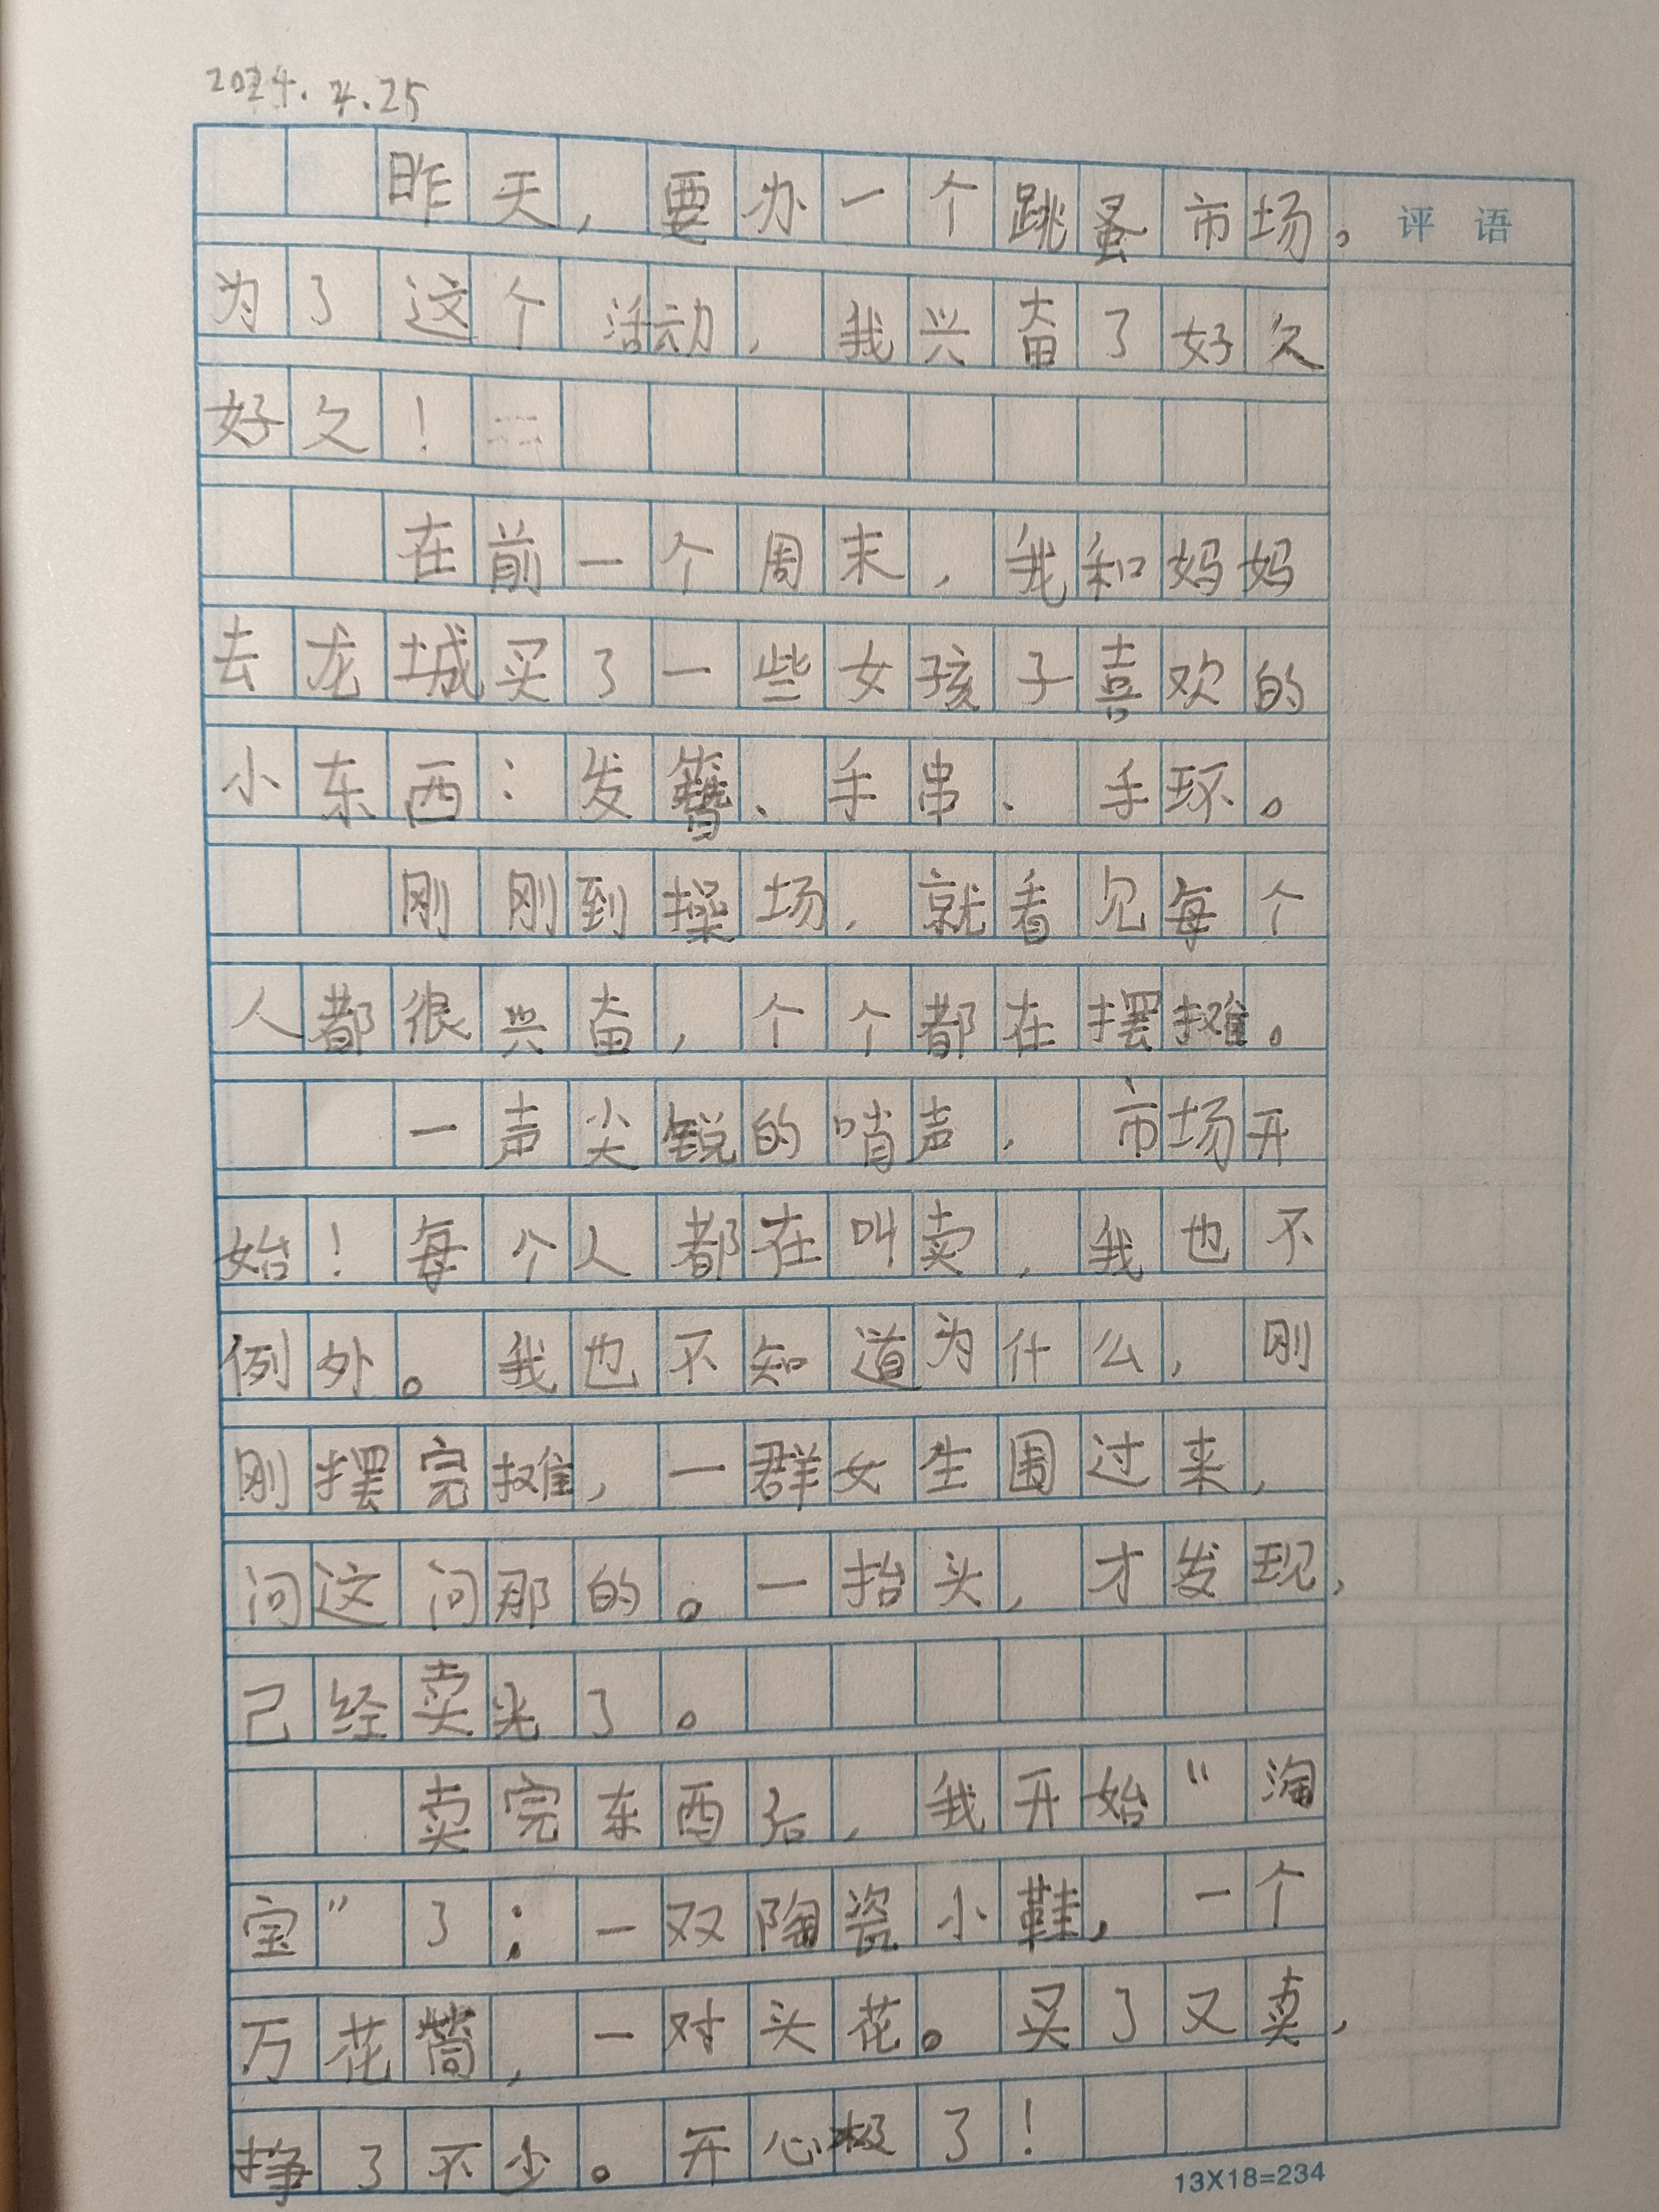 2024.4.25
昨天,要办一个跳蚤市场。
评语
为了这个活动,我兴奋了好久
好久!
在前一个周末,我和妈妈
去龙城买了一些女孩子喜欢的
小东西:发簪、手串、手环。
刚刚到操场,就看见每个
人都很兴奋,个个都在摆摊。
一声尖锐的哨声,市场开
始!每个人都在叫卖,我也不
例外。我也不知道为什么,刚
刚摆完摊,一群女生围过来,
问这问那的。一抬头,才发现,
己经卖光了。
卖完东西后,我开始“淘
宝”了:一双陶瓷小鞋,一个
万花筒,一对头花。买了又卖,
挣了不少。开心极了!
13X18=234